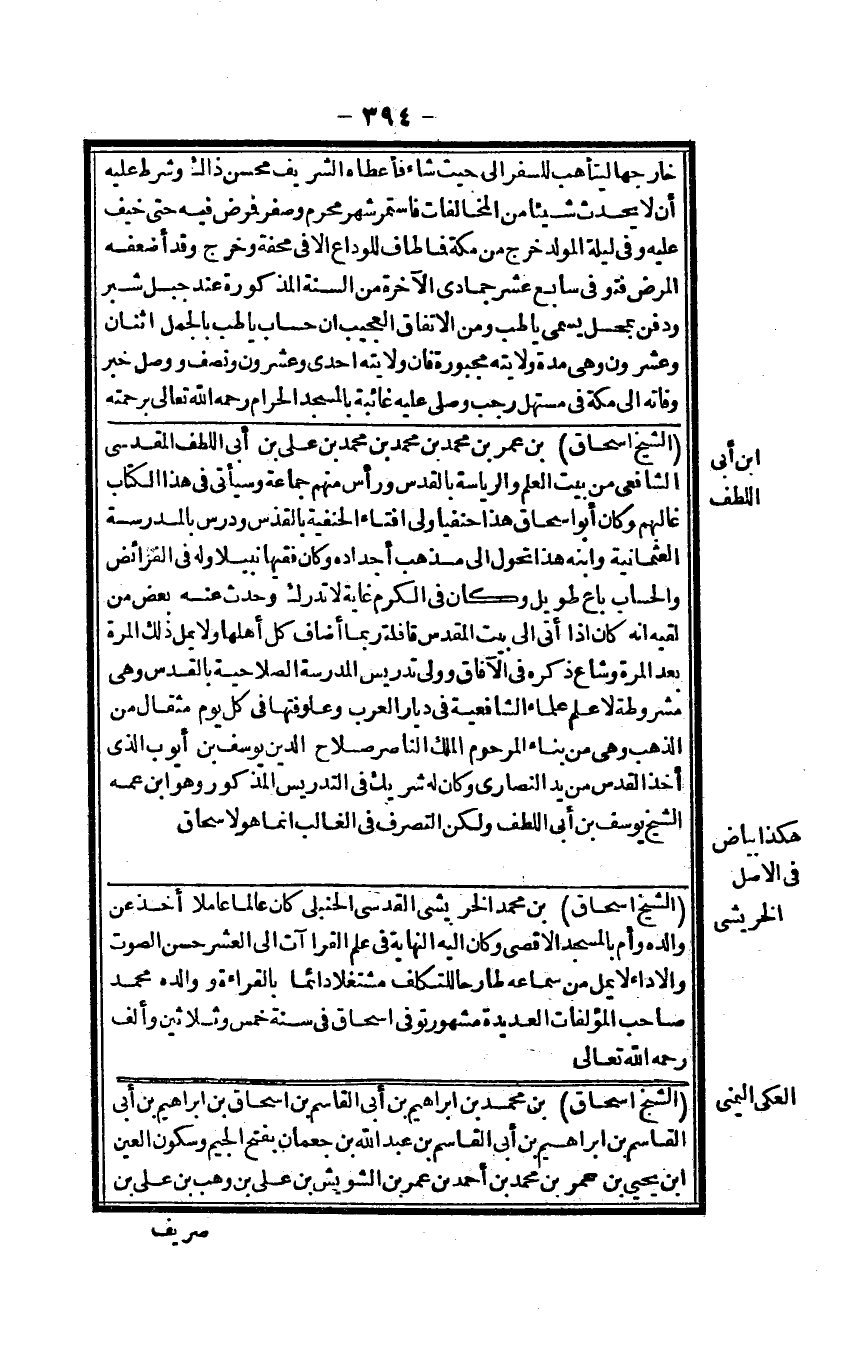 - ٣٩٤ -
خارجها ليتأهب للسفر الى حيث شاء فأعطاه الشريف محسن ذلك وشرط عليه
أن لا يحدث شيئا من المخالفات فاستمر شهر محرم وصفر فرض فيه حتى خيف
عليه وفى ليلة المولد خرج من مكة فما طاف للوداع الا فى محفة وخرج وقد أضعفه
المرض فتوفى سابع عشر جمادى الآخرة من السنة المذكورة عند جبل شبر
ودفن بمحل يسمى ياطب ومن الاتفاق العجيب ان حساب ياطب بالجمل اثنان
وعشرون وهى مدة ولايته مجبورة فان ولايته احدى وعشرون ونصف ووصل خبر
وفاته الى مكة فى مستهل رجب وصلى عليه غائبة بالمسجد الحرام رحمه الله تعالى برحمته
(الشيخ اسحاق) بن عمر بن محمد بن محمد بن محمد بن على بن أبى اللطف المقدسى
ابن أبى
اللطف
الشافعى من بيت العلم والرياسة بالقدس ورأس منهم جماعة وسيأتى فى هذا الكتاب
غالبهم وكان أبو اسحاق هذا حنفيا ولى افتاء الحنفية بالقدس ودرس بالمدرسة
العثمانية وابنه هذا تحول الى مذهب أجداده وكان فقيها نبيلا وله فى الفرائض
والحساب باع طويل وكان فى الكرم غاية لا تدرك وحدث عنه بعض من
لقيه انه كان اذا أتى الى بيت المقدس قافلة ربما أضاف كل أهلها ولا يمل ذلك المرة
بعد المرة وشاع ذكره فى الآفاق وولى تدريس المدرسة الصلاحية بالقدس وهى
مشروطة لاعلم علماء الشافعية فى ديار العرب وعلوفتها فى كل يوم مثقال من
الذهب وهى من بناء المرحوم الملك الناصر صلاح الدين يوسف بن أيوب الذى
أخذ القدس من يد النصارى وكان له شريك فى التدريس المذكور وهو ابن عمه
الشيخ يوسف بن أبى اللطف ولكن التصرف فى الغالب انما هو لاسحاق
هكذا بياض
فى الاصل
(الشيخ اسحاق) بن محمد الخريشى القدسى الحنبلى كان عالما عاملا أخذ عن
الخريشى
والده وأم بالمسجد الاقصى وكان اليه النهاية فى علم القراآت الى العشر حسن الصوت
والاداء لا يمل من سماعه طارحا للتكلف مشتغلا دائما بالقراءة و والده محمد
صاحب المؤلفات العديدة مشهور توفى اسحاق فى سنة خمس وثلاثين وألف
رحمه الله تعالى
(الشيخ اسحاق) بن محمد بن ابراهيم بن أبى القاسم بن اسحاق بن ابراهيم بن أبى
العكى اليمنى
القاسم بن ابراهيم بن أبى القاسم بن عبد الله بن جعمان بفتح الجيم وسكون العين
ابن يحيى بن عمر بن محمد بن أحمد بن عمر بن الشويش بن على بن وهب بن على بن
صريف